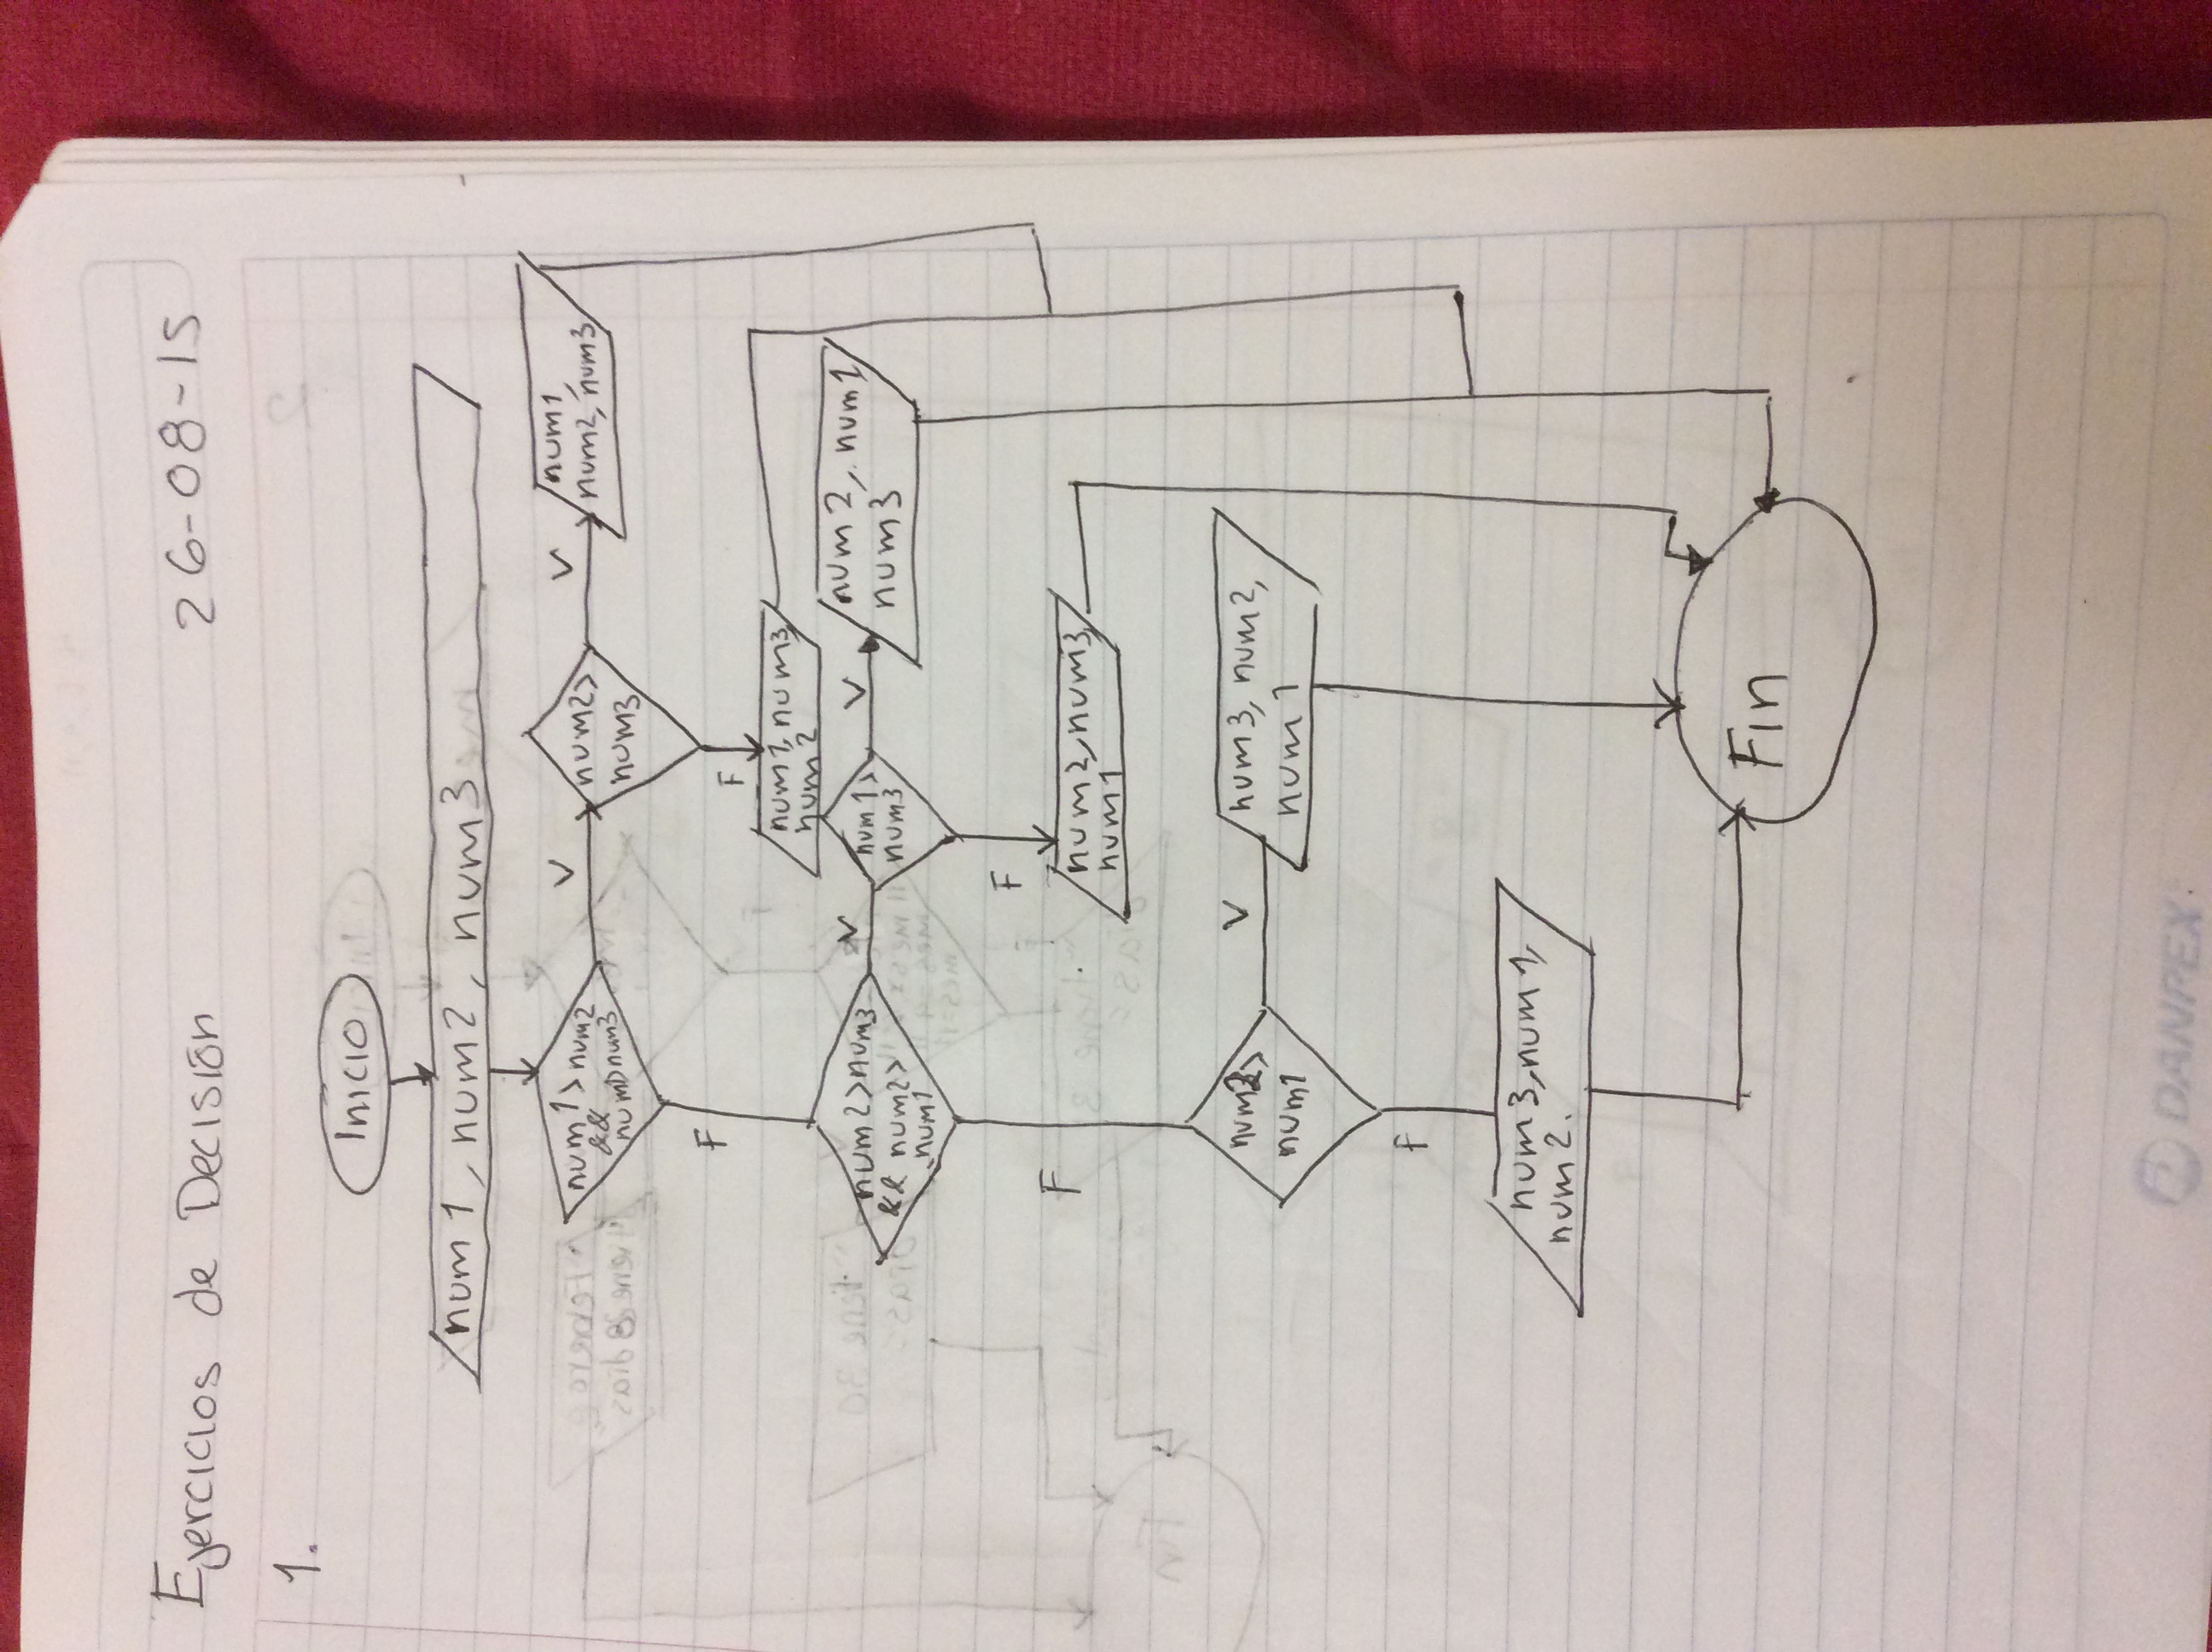 Ejercicios de Decisión 26-08-15
1.
Inicio
num1, num2, num3
num1>num2
&&
num1>num3
V
num2>
num3
V
num1,
num2, num3
F
F
num1, num3,
num2
num2>num3
&& num2>
num1
V
num1>
num3
V
num2, num1
num3
F
F
num2, num3,
num1
num2>
num1
V
num3, num2,
num1
F
num3, num1,
num2.
Fin
DANPEX